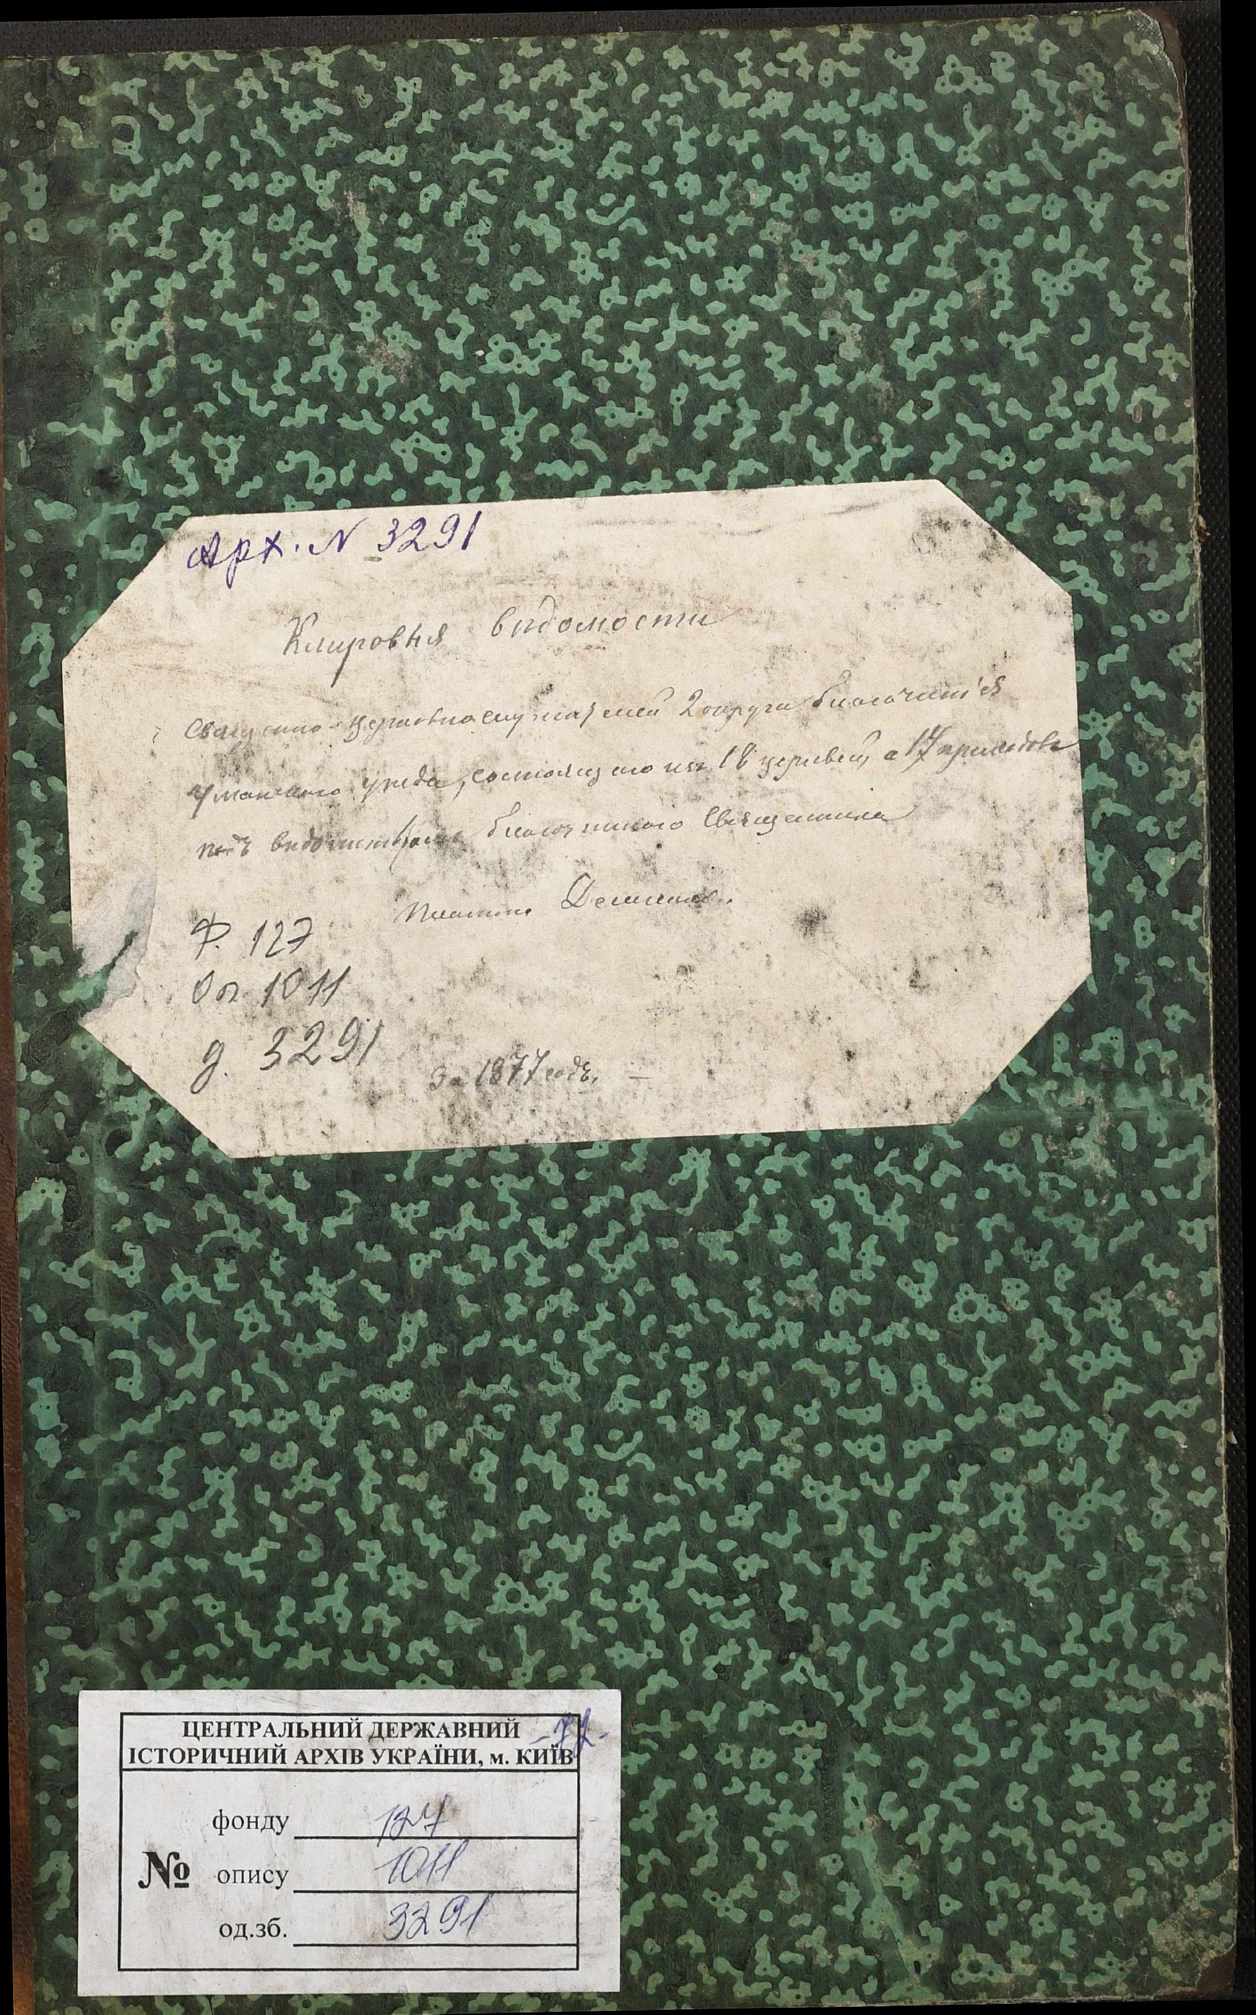 Арх. N 3291
Клировыя вѣдомости
Священно-церковнослужителей 2 округа благочинія
Уманскаго уѣзда, состоящаго изъ 18 церквей, а 17 приходовъ
подъ вѣдомствомъ благочиннаго Священника
Ф. 127
Оп. 1011
д. 3291
За 1877 годъ.
ЦЕНТРАЛЬНИЙ ДЕРЖАВНИЙ
ІСТОРИЧНИЙ АРХІВ УКРАЇНИ, м. КИЇВ
фонду 127
№ опису 1011
од.зб. 3291